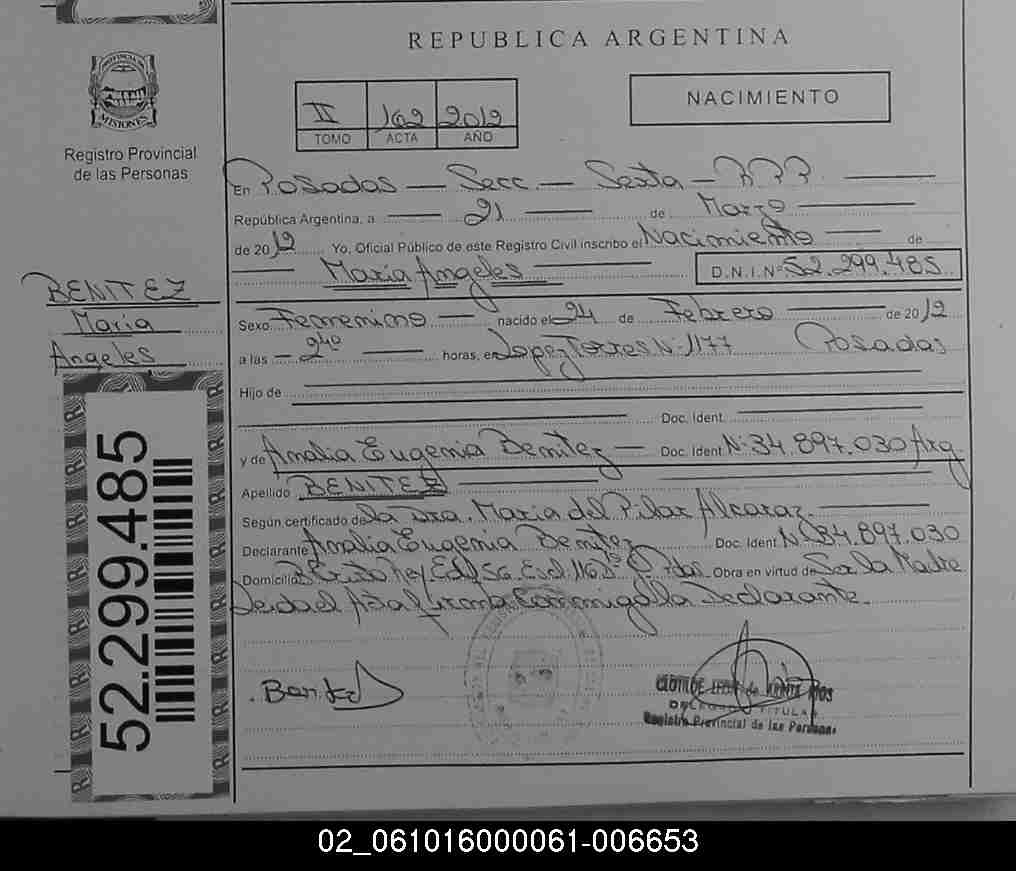 REPUBLICA ARGENTINA
PROVINCIA DE
MISIONES
Registro Provincial
de las Personas
II 162 2012
TOMO ACTA AÑO
NACIMIENTO
En Posadas — Secc — Sexta — RPP. —
República Argentina, a — 21 — de Marzo —
de 2012 Yo, Oficial Público de este Registro Civil inscribo el Nacimiento — de
— María Angeles — D.N.I.Nº 52.299.485
BENITEZ
Maria
Angeles
Sexo Femenino — nacido el 24 de Febrero — de 2012
a las — 2 40 — horas, en Lopez Torres Nº 1177 Posadas
Hijo de
Doc. Ident.
y de Amalia Eugenia Benitez — Doc. Ident Nº 34.897.030 Arg
Apellido BENITEZ
Según certificado de la Dra. Maria del Pilar Alcaraz —
Declarante Amalia Eugenia Benitez Doc. Ident Nº 34.897.030
Domicilio Obra en virtud de Ser la Madre
Leida el Acta firma Conmigo la Declarante.
Benitez
CLOTILDE
DELEGADO TITULAR
Registro Provincial de las Personas
52.299.485
02_061016000061-006653